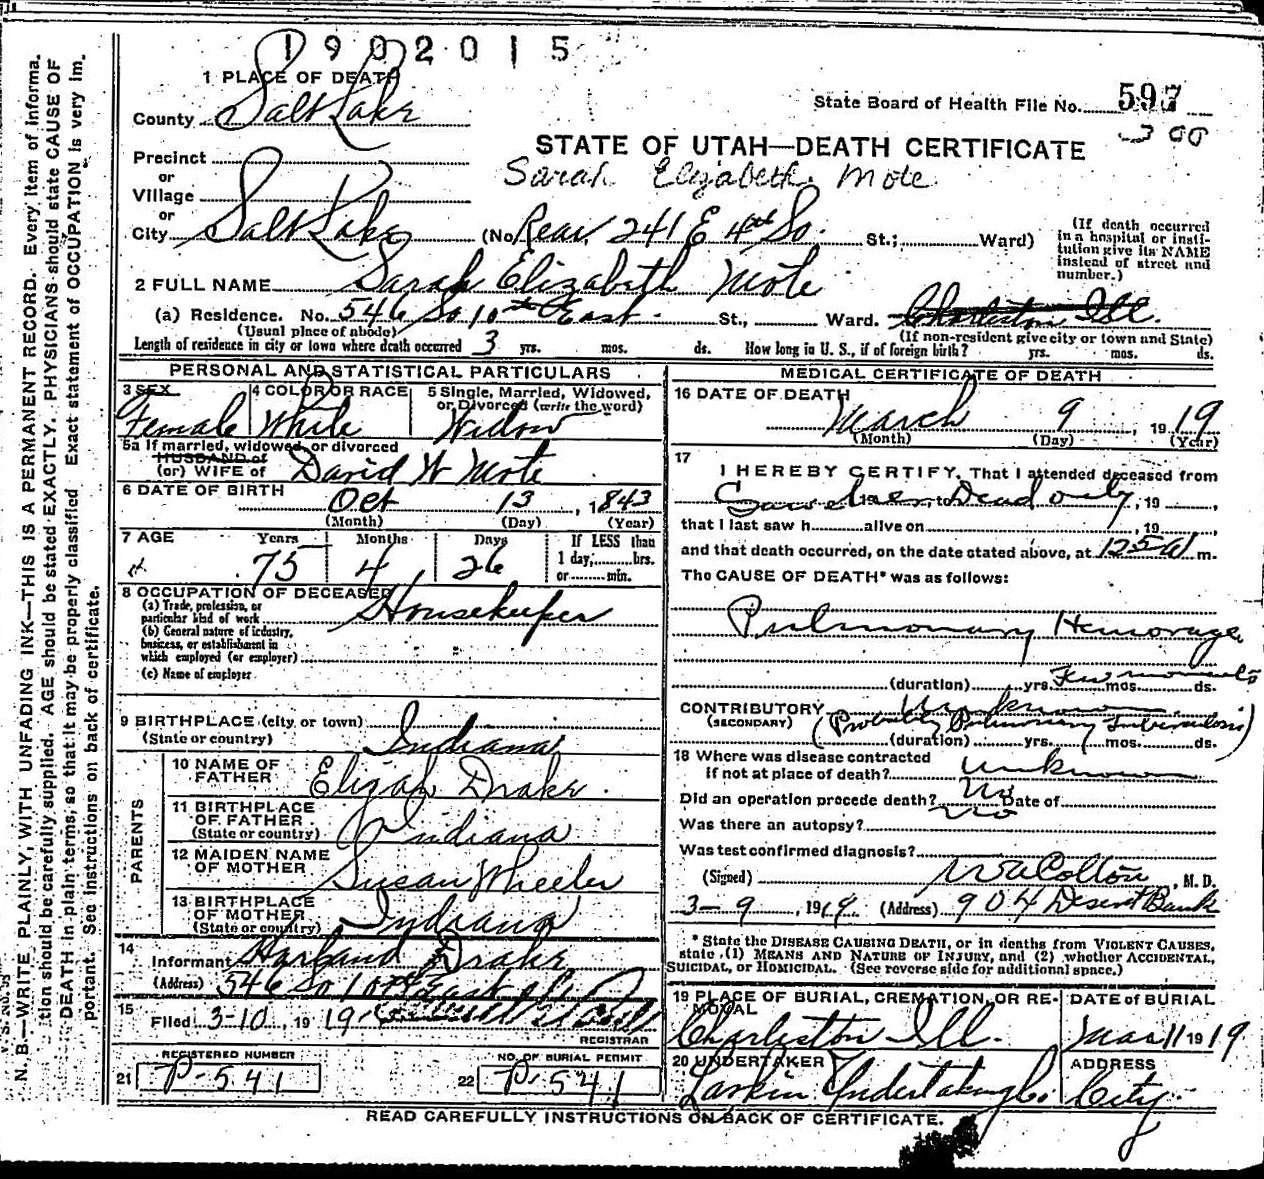 1902015
1 PLACE OF DEATH
County Salt Lake
State Board of Health File No. 597
300
Precinct
STATE OF UTAH—DEATH CERTIFICATE
or
Sarah Elizabeth Mote
Village
or
City Salt Lake (No. Rear 241 E 4th So. St.; Ward)
(If death occurred in a hospital or insti-tution give its NAME instead of street and number.)
2 FULL NAME Sarah Elizabeth Mote
(a) Residence. No. 546 So 10th East St., Ward. Charleston Ill.
(Usual place of abode) (If non-resident give city or town and State)
Length of residence in city or town where death occurred 3 yrs. mos. ds. How long in U. S., if of foreign birth? yrs. mos. ds.
PERSONAL AND STATISTICAL PARTICULARS
3 SEX Female
4 COLOR OR RACE White
5 Single, Married, Widowed, or Divorced (write the word) Widow
5a If married, widowed, or divorced
HUSBAND of
(or) WIFE of David W Mote
6 DATE OF BIRTH Oct 13, 1843
(Month) (Day) (Year)
7 AGE Years Months Days If LESS than
75 4 26 1 day, hrs.
or min.
8 OCCUPATION OF DECEASED
(a) Trade, profession, or
particular kind of work Housekeeper
(b) General nature of industry,
business, or establishment in
which employed (or employer)
(c) Name of employer
9 BIRTHPLACE (city or town)
(State or country) Indiana
PARENTS
10 NAME OF FATHER Elijah Drake.
11 BIRTHPLACE OF FATHER (State or country) Indiana
12 MAIDEN NAME OF MOTHER Susan Wheeler
13 BIRTHPLACE OF MOTHER (State or country) Indiana
14
Informant Harland Drake
(Address) 546 So 10th East
15
Filed 3-10, 1919
REGISTRAR
REGISTERED NUMBER
21 P-541
NO. OF BURIAL PERMIT
22 P-541
MEDICAL CERTIFICATE OF DEATH
16 DATE OF DEATH
March 9, 1919
(Month) (Day) (Year)
17
I HEREBY CERTIFY, That I attended deceased from
Saw her, to Dead only, 19
that I last saw h alive on , 19
and that death occurred, on the date stated above, at 1250 A m.
The CAUSE OF DEATH* was as follows:
Pulmonary Hemorage
(duration) yrs. Few moments mos. ds.
CONTRIBUTORY Unknown
(SECONDARY) (Probably Pulmonary Tuberculosis)
(duration) yrs. mos. ds.
18 Where was disease contracted
if not at place of death? Unknown
Did an operation precede death? No Date of
Was there an autopsy? No
Was test confirmed diagnosis?
(Signed) W A Colton, M. D.
3-9, 1919 (Address) 904 Deseret Bank
* State the DISEASE CAUSING DEATH, or in deaths from VIOLENT CAUSES,
state (1) MEANS AND NATURE OF INJURY, and (2) whether ACCIDENTAL,
SUICIDAL, or HOMICIDAL. (See reverse side for additional space.)
19 PLACE OF BURIAL, CREMATION, OR RE-MOVAL
Charleston Ill.
DATE of BURIAL
Mar 11 1919
20 UNDERTAKER
Larkin Undertaking Co.
ADDRESS
City.
READ CAREFULLY INSTRUCTIONS ON BACK OF CERTIFICATE.
N. B.—WRITE PLAINLY, WITH UNFADING INK—THIS IS A PERMANENT RECORD. Every item of informa-
tion should be carefully supplied. AGE should be stated EXACTLY. PHYSICIANS should state CAUSE OF
DEATH in plain terms, so that it may be properly classified. Exact statement of OCCUPATION is very im-
portant. See instructions on back of certificate.